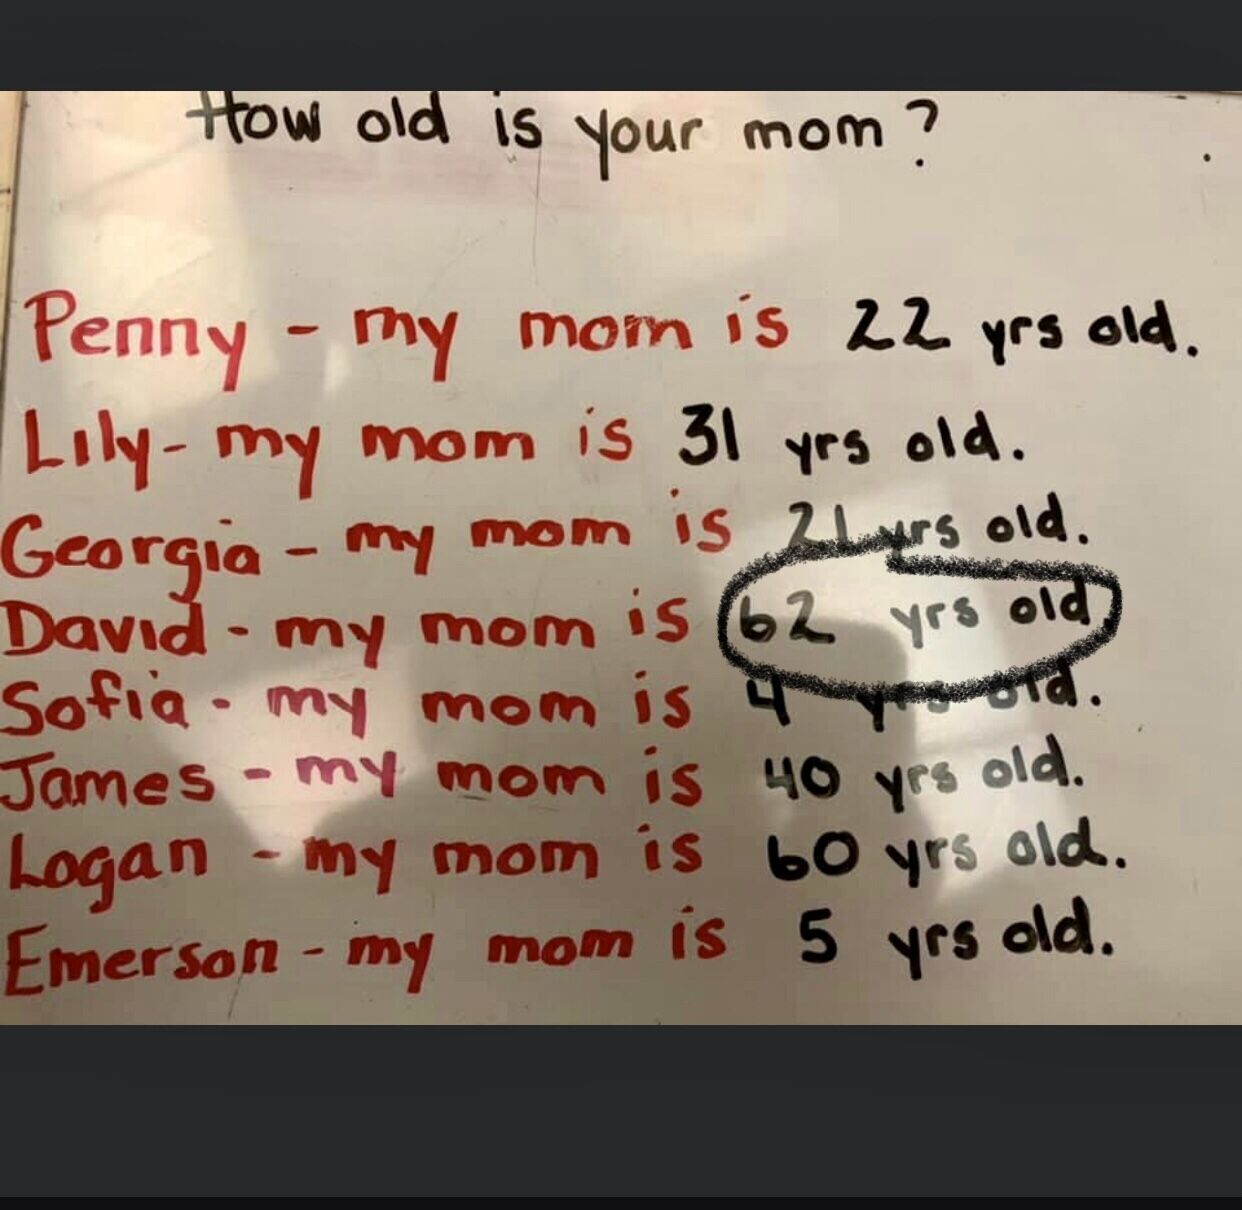 How old is your mom?
Penny - my mom is 22 yrs old.
Lily - my mom is 31 yrs old.
Georgia - my mom is 21 yrs old.
David - my mom is 62 yrs old
Sofia - my mom is 4 yrs old.
James - my mom is 40 yrs old.
Logan - my mom is 60 yrs old.
Emerson - my mom is 5 yrs old.